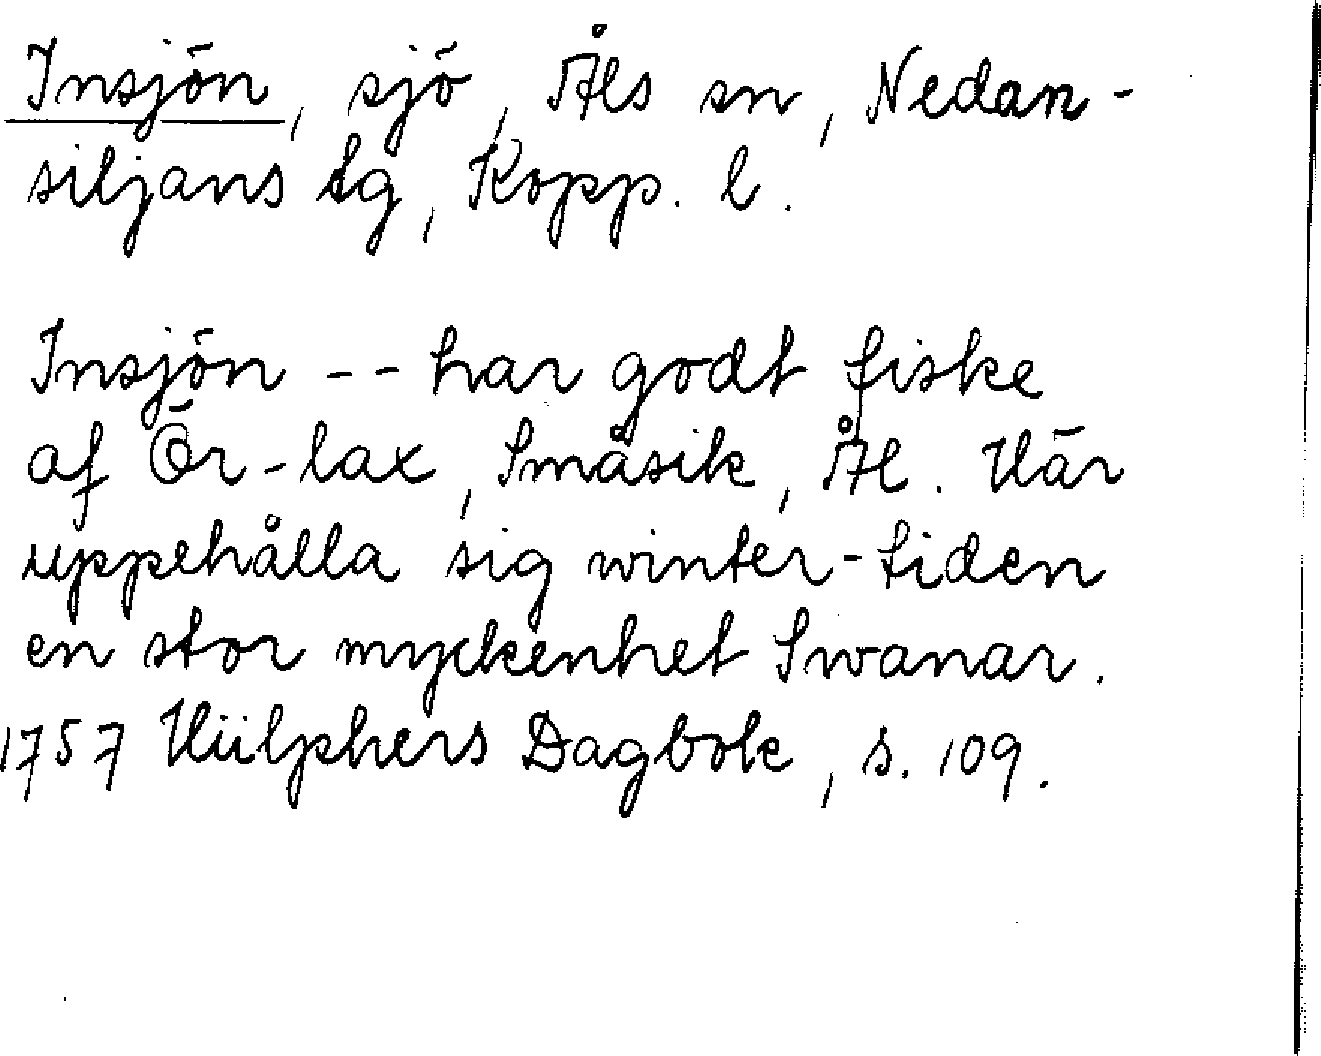 Insjön, sjö, Åls sn, Nedan-
siljans tg, Kopp. l.
Insjön -- har godt fiske
af Ör-lax, Småsik, Ål. Här
uppehålla sig winter-tiden
en stor myckenhet Swanar.
1757 Hülphers Dagbok, s. 109.